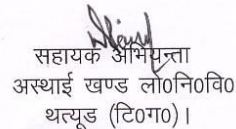 सहायक अभियन्ता
अस्थाई खण्ड लो0नि0वि0
थत्यूड (टि0ग0)।